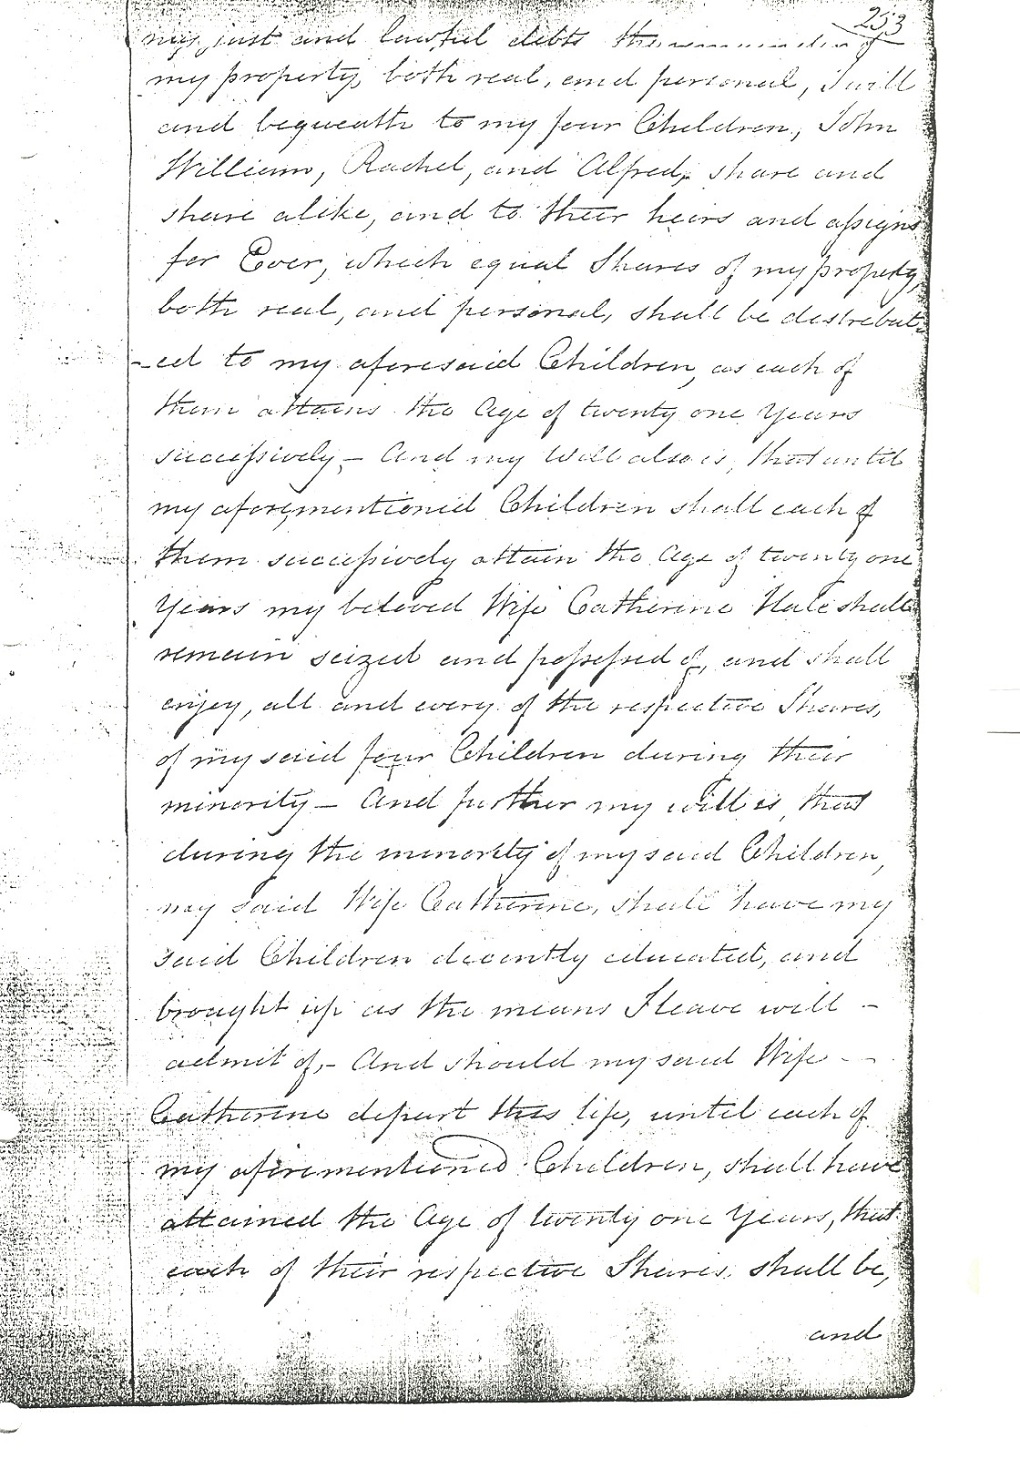 253
my just and lawful debts the remainder of
my property, both real, and personal, I will
and bequeath to my four Children, John
William, Rachel, and Alfred, share and
share alike, and to their heirs and assigns
for Ever, which equal Shares of my property,
both real, and personal, shall be destribut-
-ed to my aforesaid Children, as each of
them attains the Age of twenty one Years
successively,- And my Will also is, that until
my aforementioned Children shall each of
them successively attain the Age of twenty one
Years my beloved Wife Catherine Hale shall
remain seized and possessed of, and shall
enjoy, all and every of the respective Shares,
of my said four Children during their
minority- And further my will is, that
during the minority of my said Children,
my said Wife Catherine, shall have my
said Children decently educated, and
brought up as the means I leave will -
admit of,- And should my said Wife - -
Catherine depart this life, until each of
my aforementioned Children, shall have
attained the Age of twenty one Years, that
each of their respective Shares shall be,
and